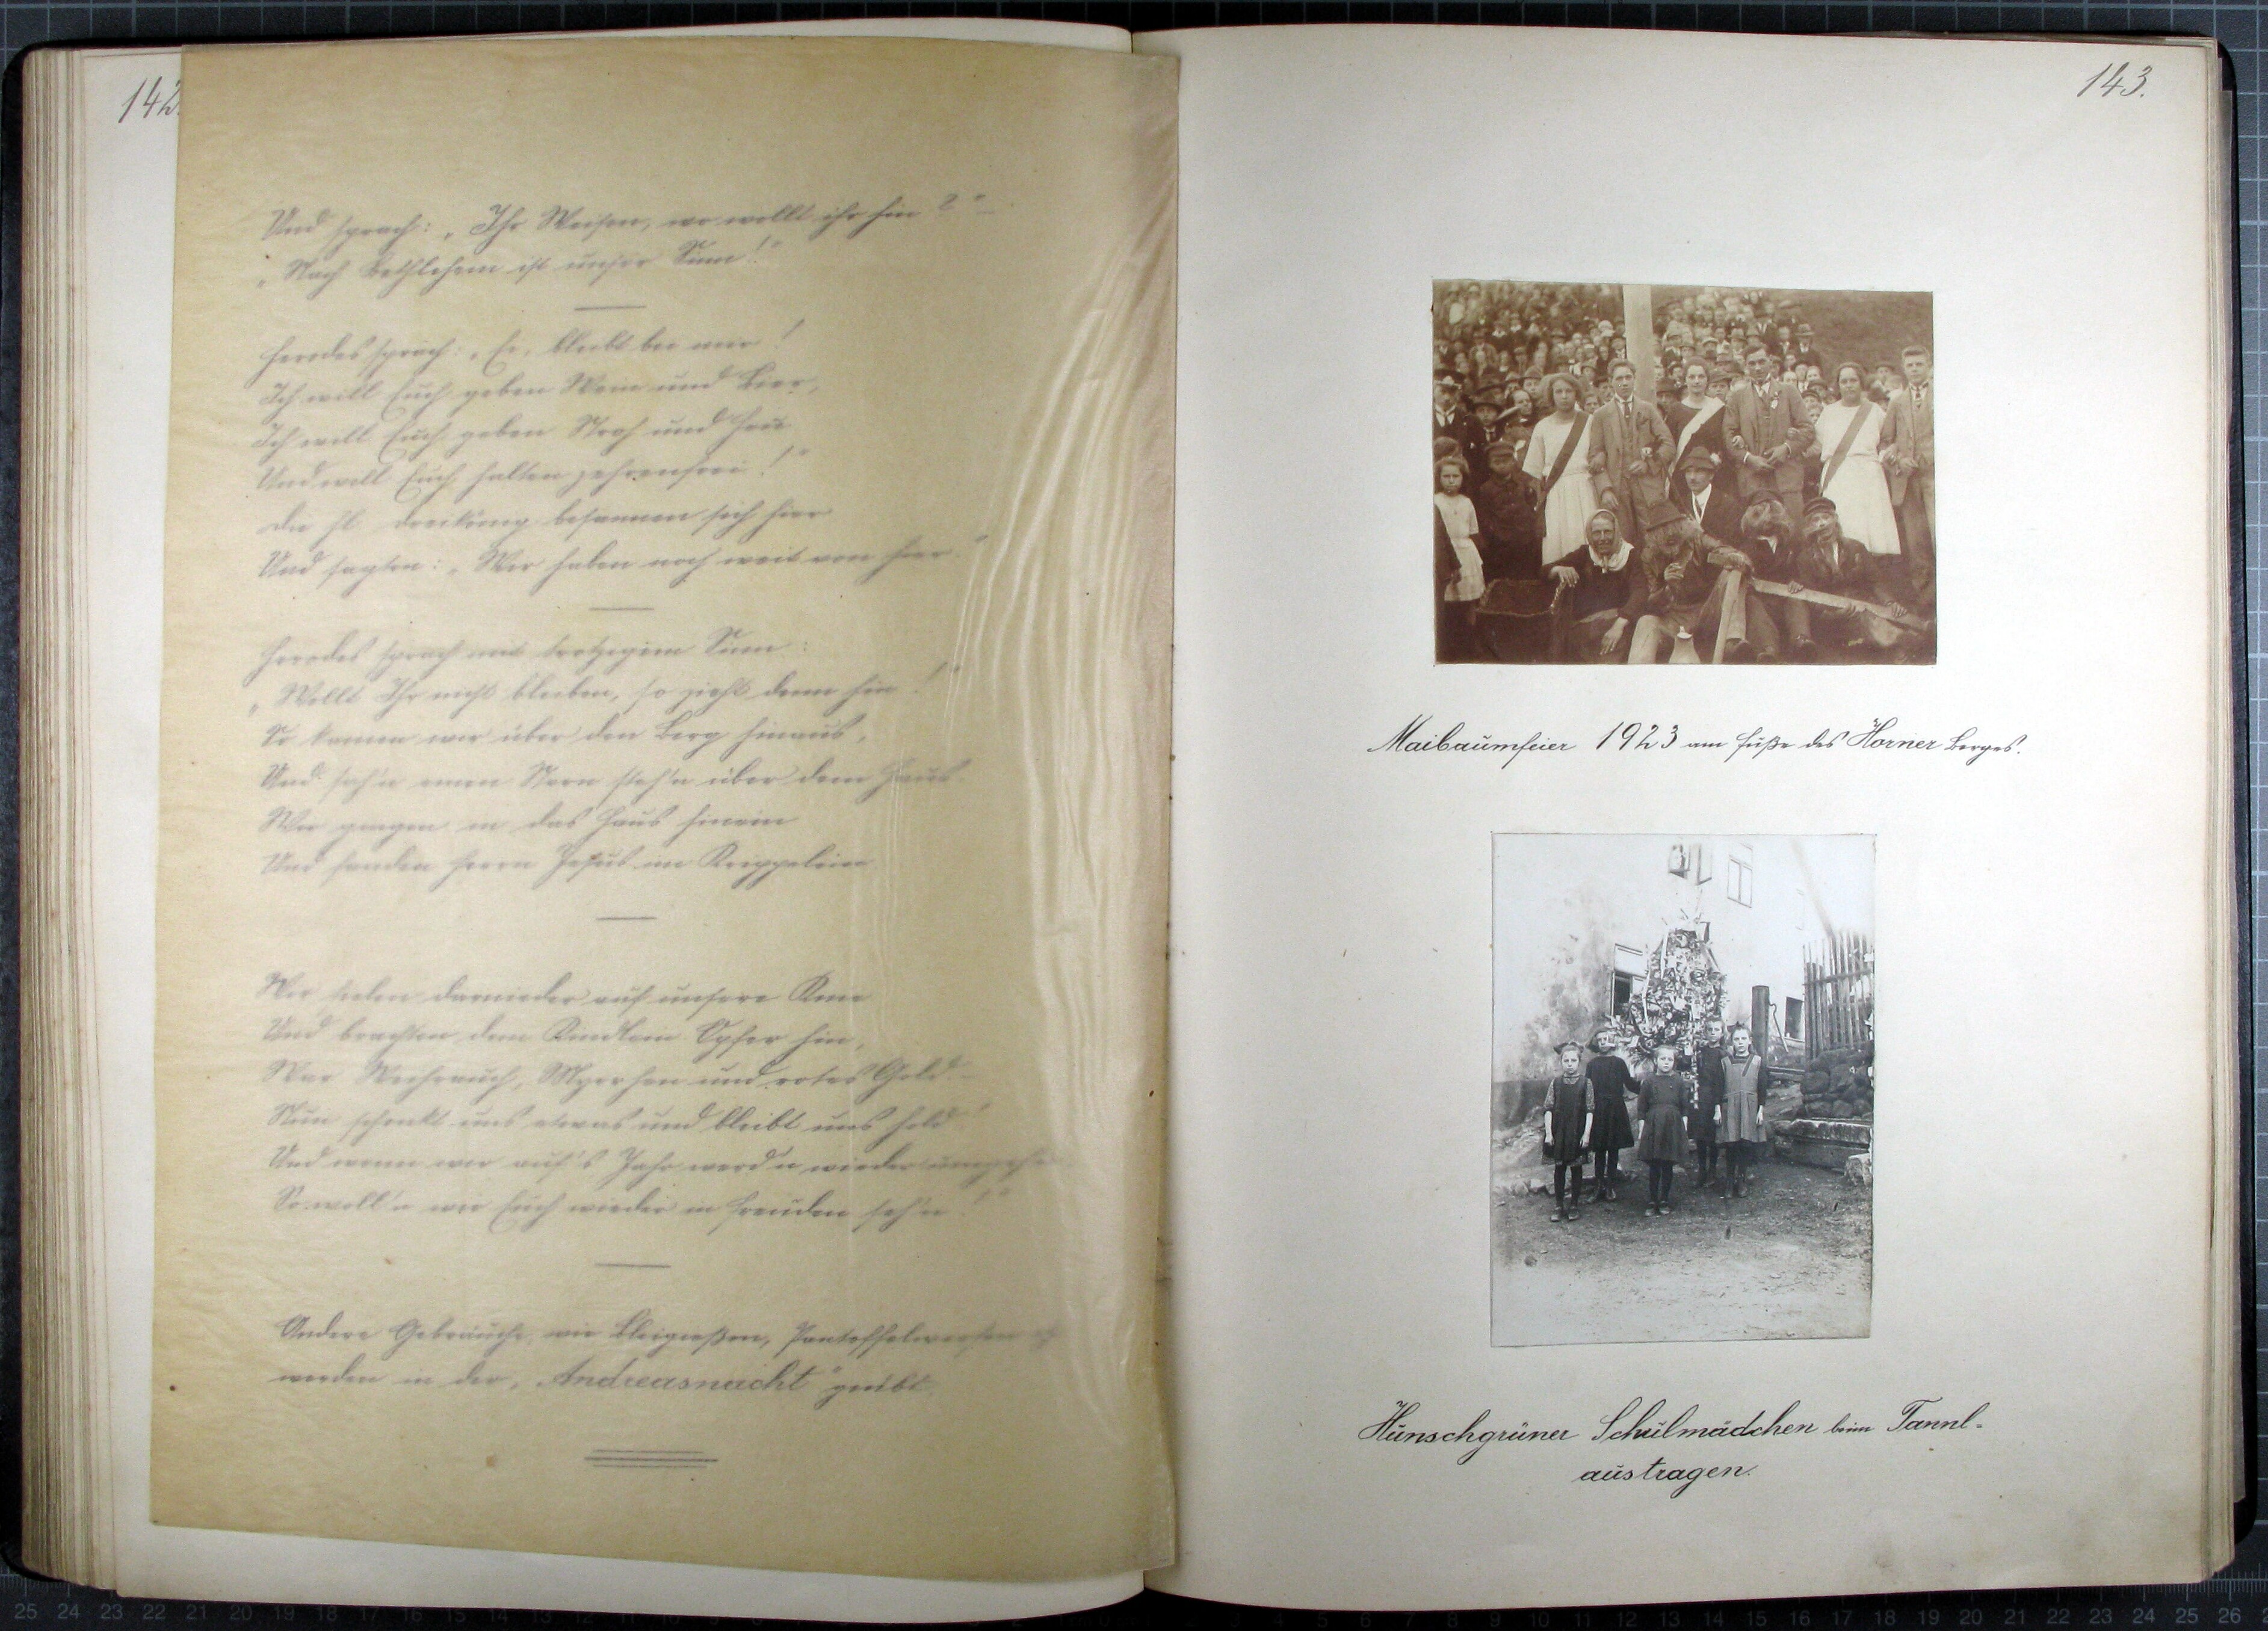 142.
Und sprach: „Ihr Weisen, wo wollt ihr hin?"
„Nach Bethlehem ist unser Sinn!"
Herodes sprach: „Ei, bleibt bei mir!
Ich will Euch geben Wein und Bier,
Ich will Euch geben Stroh und Heu
Und will Euch halten zehrenfrei!"
Die hl. Dreikönig besannen sich hier
Und sagten: „Wir haben noch weit von hier."
Herodes sprach mit trotzigem Sinn:
„Wollt Ihr nicht bleiben, so zieht denn hin!"
So kamen wir über den Berg hinaus,
Und sah'n einen Stern steh'n über dem Haus.
Wir gingen in das Haus hinein
Und fanden Herrn Jesus im Krippelein
Wir fielen darnieder auf unsere Knie
Und brachten dem Kindlein Opfer hin,
War Weihrauch, Myrrhen und rotes Gold.
Nun schenkt uns etwas und bleibt uns hold!
Und wenn wir auf's Jahr werd'n wieder umgeh'n
So woll'n wir Euch wieder in Freuden seh'n!"
Andere Gebräuche, wie Bleigießen, Pantoffelwerfen
werden in der „Andreasnacht" geübt.
143.
Maibaumfeier 1923 am Fuße des Horner Berges.
Hunschgrüner Schulmädchen beim Tannl-
austragen.
25 24 23 22 21 20 19 18 17 16 15 14 13 12 11
3 4 5 6 7 8 9 10 11 12 13 14 15 16 17 18 19 20 21 22 23 24 25 26